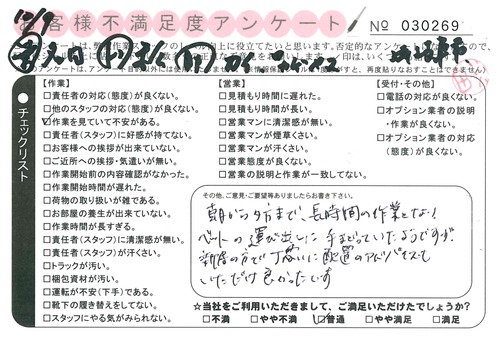 お客様不満足度アンケート
№ 030269
チェックリスト
【作業】
□責任者の対応(態度)が良くない。
□他のスタッフの対応(態度)が良くない。
☑作業を見ていて不安がある。
□責任者(スタッフ)に好感が持てない。
□お客様への挨拶が出来ていない。
□ご近所への挨拶・気遣いが無い。
□作業開始前の内容確認がなかった。
□作業開始時間が遅れた。
□荷物の取り扱いが雑である。
□お部屋の養生が出来ていない。
□作業時間が長すぎる。
□責任者(スタッフ)に清潔感が無い。
□責任者(スタッフ)が汗くさい。
□トラックが汚い。
□梱包資材が汚い。
□運転が不安(下手)である。
□靴下の履き替えをしてない。
□スタッフにやる気がみられない。
【営業】
□見積もり時間に遅れた。
□見積もり時間が長い。
□営業マンに清潔感が無い。
□営業マンが煙草くさい。
□営業マンが汗くさい。
□営業態度が良くない。
□営業の説明と作業が一致してない。
【受付・その他】
□電話の対応が良くない。
□オプション業者の説明
・作業が良くない。
□オプション業者の対応
(態度)が良くない。
その他、ご意見・ご要望等ありましたらお書き下さい。
朝から夕方まで、長時間の作業となり
ベットの運び出しに手まどっていたようですが
新居の方で丁寧に配置のアドバイスをして
いただけ良かったです
☆当社をご利用いただきまして、ご満足いただけたでしょうか?
□不満 □やや不満 ☑普通 □やや満足 □満足